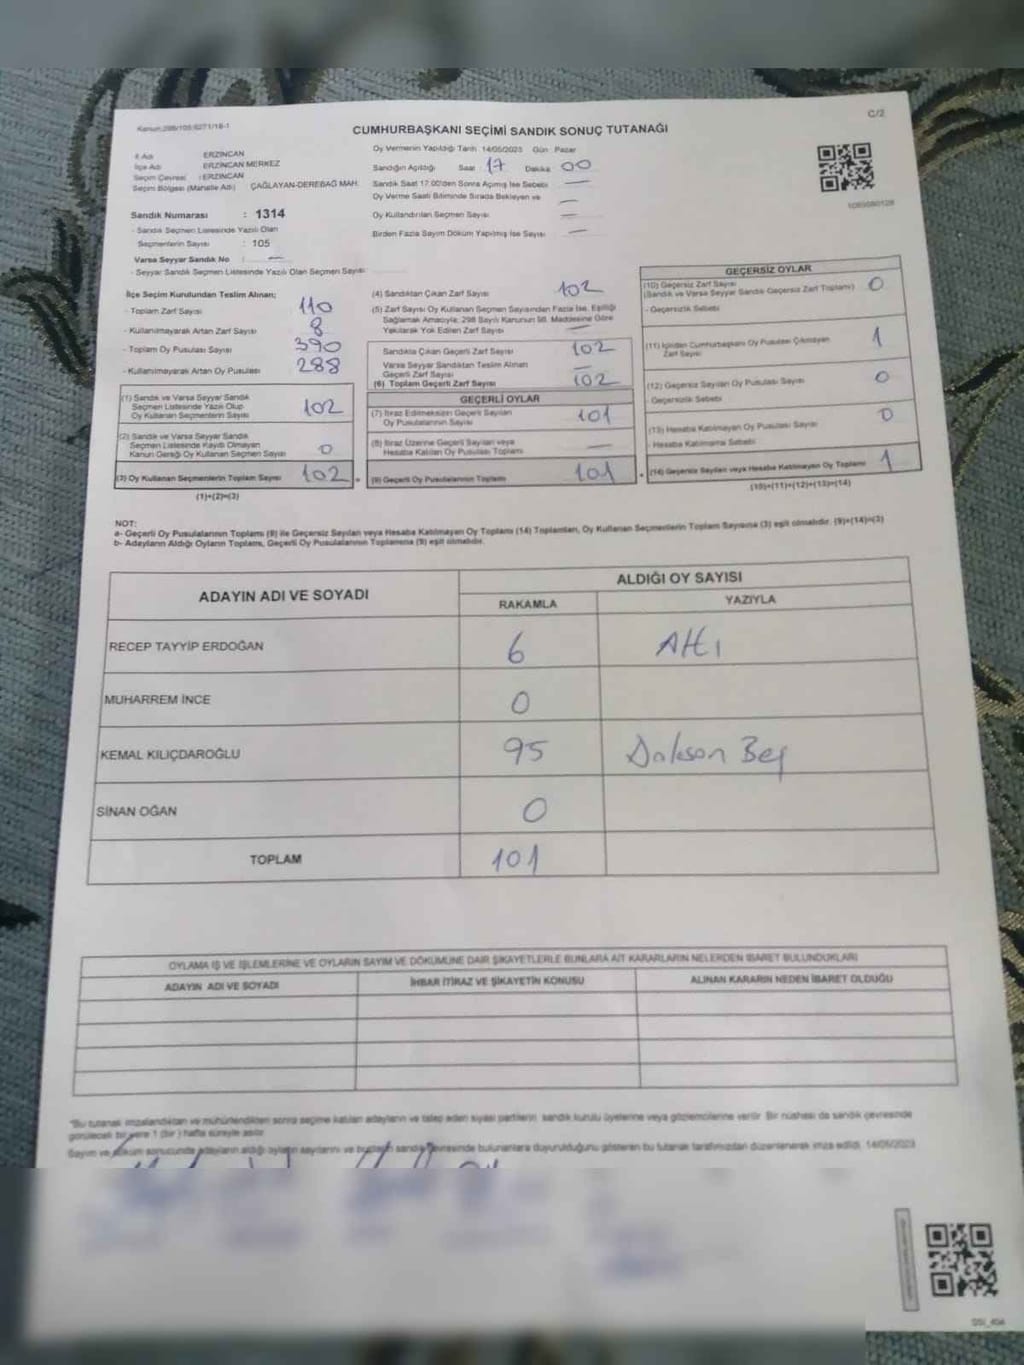 Kanun:298/105;6271/18-1
C/2
CUMHURBAŞKANI SEÇİMİ SANDIK SONUÇ TUTANAĞI
İl Adı ERZİNCAN
İlçe Adı ERZİNCAN MERKEZ
Seçim Çevresi : ERZİNCAN
Seçim Bölgesi (Mahalle Adı) ÇAĞLAYAN-DEREBAĞ MAH.
Sandık Numarası : 1314
- Sandık Seçmen Listesinde Yazılı Olan
Seçmenlerin Sayısı : 105
Varsa Seyyar Sandık No : —
- Seyyar Sandık Seçmen Listesinde Yazılı Olan Seçmen Sayısı
Oy Vermenin Yapıldığı Tarih 14/05/2023 Gün Pazar
Sandığın Açıldığı Saat 17 Dakika 00
Sandık Saat 17.00'den Sonra Açılmış İse Sebebi —
Oy Verme Saati Bitiminde Sırada Bekleyen ve —
Oy Kullandırılan Seçmen Sayısı —
Birden Fazla Sayım Döküm Yapılmış İse Sayısı —
İlçe Seçim Kurulundan Teslim Alınan;
- Toplam Zarf Sayısı 110
- Kullanılmayarak Artan Zarf Sayısı 8
- Toplam Oy Pusulası Sayısı 390
- Kullanılmayarak Artan Oy Pusulası 288
(1) Sandık ve Varsa Seyyar Sandık
Seçmen Listesinde Yazılı Olup
Oy Kullanan Seçmenlerin Sayısı 102
(2) Sandık ve Varsa Seyyar Sandık
Seçmen Listesinde Kayıtlı Olmayan
Kanun Gereği Oy Kullanan Seçmen Sayısı 0
(3) Oy Kullanan Seçmenlerin Toplam Sayısı 102
(1)+(2)=(3)
(4) Sandıktan Çıkan Zarf Sayısı 102
(5) Zarf Sayısı Oy Kullanan Seçmen Sayısından Fazla İse, Eşitliği
Sağlamak Amacıyla, 298 Sayılı Kanunun 98. Maddesine Göre
Yakılarak Yok Edilen Zarf Sayısı —
Sandıkta Çıkan Geçerli Zarf Sayısı 102
Varsa Seyyar Sandıktan Teslim Alınan
Geçerli Zarf Sayısı —
(6) Toplam Geçerli Zarf Sayısı 102
GEÇERLİ OYLAR
(7) İtiraz Edilmeksizin Geçerli Sayılan
Oy Pusulalarının Sayısı 101
(8) İtiraz Üzerine Geçerli Sayılan veya
Hesaba Katılan Oy Pusulası Toplamı —
(9) Geçerli Oy Pusulalarının Toplamı 101
GEÇERSİZ OYLAR
(10) Geçersiz Zarf Sayısı
(Sandık ve Varsa Seyyar Sandık Geçersiz Zarf Toplamı) 0
- Geçersizlik Sebebi
(11) İçinden Cumhurbaşkanı Oy Pusulası Çıkmayan
Zarf Sayısı 1
(12) Geçersiz Sayılan Oy Pusulası Sayısı 0
- Geçersizlik Sebebi
(13) Hesaba Katılmayan Oy Pusulası Sayısı 0
- Hesaba Katılmama Sebebi
(14) Geçersiz Sayılan veya Hesaba Katılmayan Oy Toplamı 1
(10)+(11)+(12)+(13)=(14)
NOT:
a- Geçerli Oy Pusulalarının Toplamı (9) ile Geçersiz Sayılan veya Hesaba Katılmayan Oy Toplamı (14) Toplamları, Oy Kullanan Seçmenlerin Toplam Sayısına (3) eşit olmalıdır. (9)+(14)=(3)
b- Adayların Aldığı Oyların Toplamı, Geçerli Oy Pusulalarının Toplamına (9) eşit olmalıdır.
ADAYIN ADI VE SOYADI ALDIĞI OY SAYISI
RAKAMLA YAZIYLA
RECEP TAYYİP ERDOĞAN 6 Altı
MUHARREM İNCE 0
KEMAL KILIÇDAROĞLU 95 Doksan Beş
SİNAN OĞAN 0
TOPLAM 101
OYLAMA İŞ VE İŞLEMLERİNE VE OYLARIN SAYIM VE DÖKÜMÜNE DAİR ŞİKAYETLERLE BUNLARA AİT KARARLARIN NELERDEN İBARET BULUNDUKLARI
ADAYIN ADI VE SOYADI İHBAR İTİRAZ VE ŞİKAYETİN KONUSU ALINAN KARARIN NEDEN İBARET OLDUĞU
"Bu tutanak imzalandıktan ve mühürlendikten sonra seçime katılan adayların ve talep eden siyasi partilerin sandık kurulu üyelerine veya gözlemcilerine verilir. Bir nüshası da sandık çevresinde
görülecek bir yere 1 (bir) hafta süreyle asılır.
Sayım ve döküm sonucunda adayların aldığı oyların sayılarını ve bu sandık çevresinde bulunanlara duyurulduğunu gösteren bu tutanak tarafımızdan düzenlenerek imza edildi. 14/05/2023